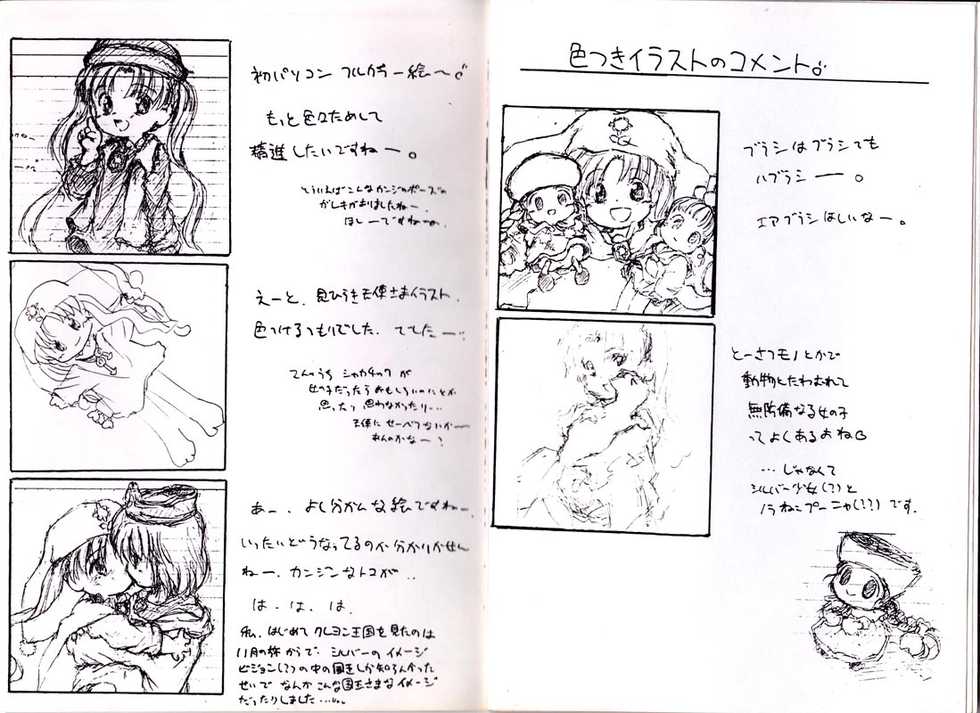 色つきイラストのコメント。
ブラシはブラシでも
ハブラシー。
エアブラシほしいなー。
とーさつモノとかで
動物とたわむれて
無防備なる女の子
ってよくあるおね
…じゃなくて
シルバー少女(?)と
のらねこプーニャ(??)です。
初パソコンフルカラー絵〜
もっと色々ためして
精進したいですねー。
そういえばこんなカンジのポーズの
ガレキがありましたねー。
ほしーですねー。
えーと、見ひらき天使さまイラスト、
色つけるつもりでした。
てんのうち シャカチック が
女の子だったらおもしろいのにとか
思ったり思わなかったり…
天使に せーべつ ないかー
あんのかなー?
あー、よく分かんな絵ですねー
いったいどうなってるのか分かりません
ねー、カンジンなトコが、、
は、は、は、
私、はじめて クレヨン王国を見たのは
11月の弥からで、シルバーのイメージ
ビジョン(?)の中の国王しか知らんかった
せいで なんか こんな国王さまなイメージ
だったりしました…